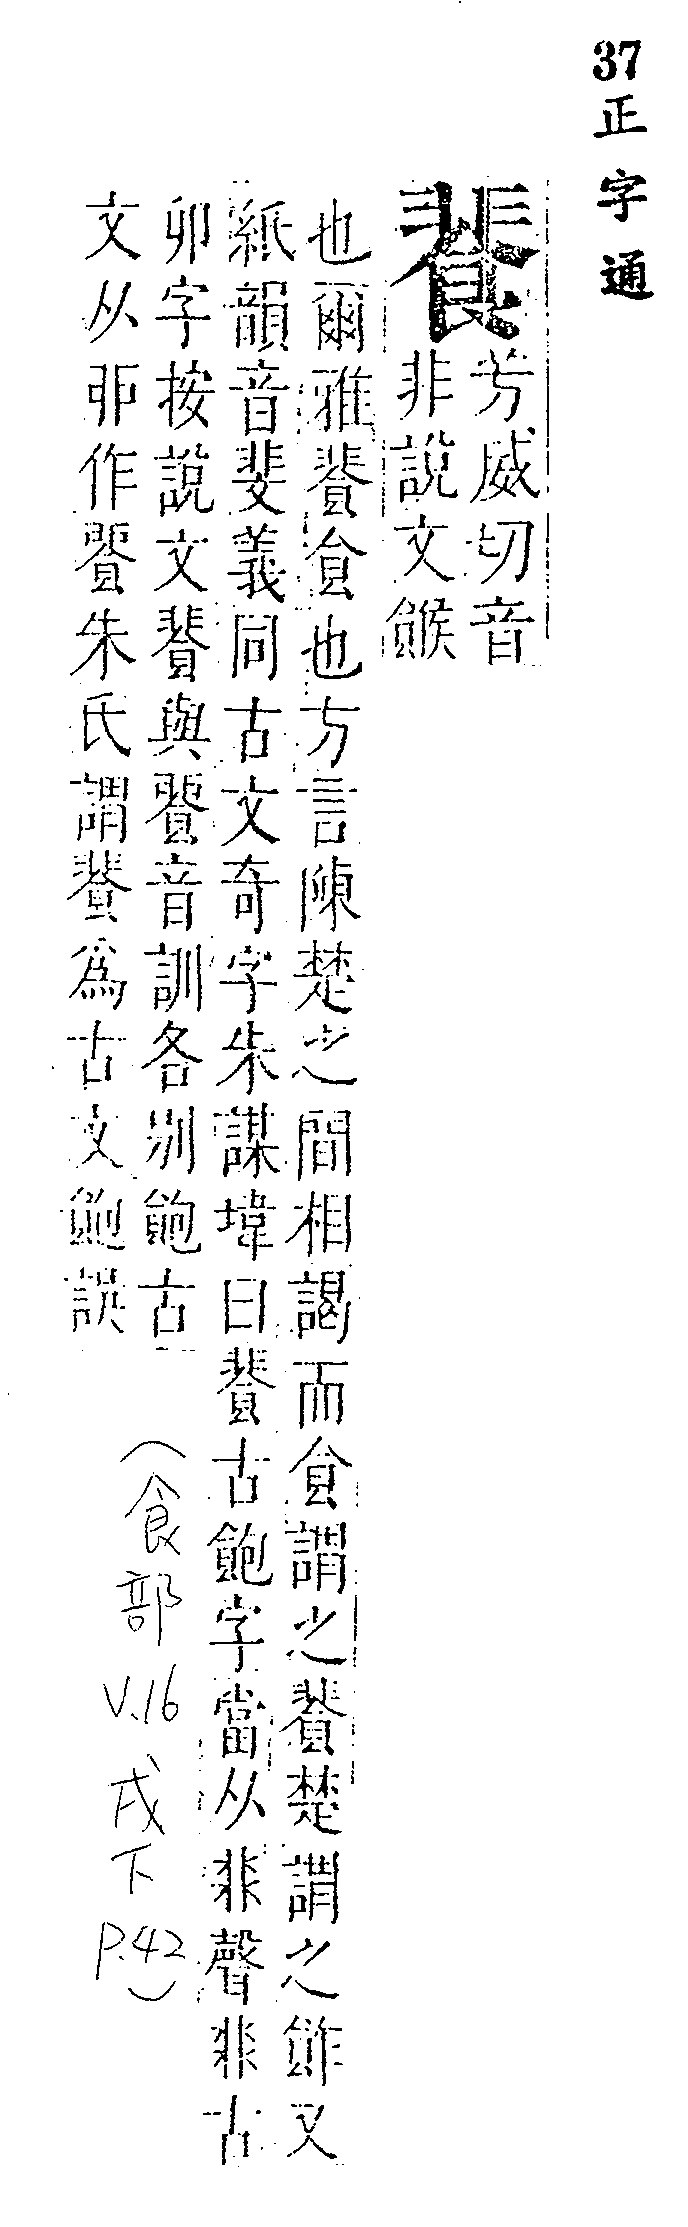 37正字通
餥芳威切音
非說文餱
也爾雅餥食也方言陳楚之間相謁而食謂之餥楚謂之飵又
紙韻音斐義同古文奇字朱謀㙔曰餥古飽字當从非聲非古
卯字按說文餥與音訓各別飽古
文从丣作朱氏謂餥爲古文飽誤
(食部 V.16 戌下 P.42)